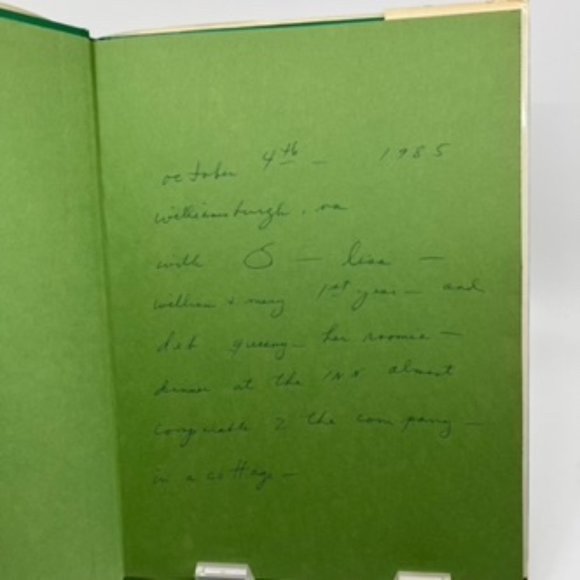 october 4th - 1985
williamsburgh, va
with O - lisa -
william & mary 1st year - and
deb her roomie -
dinner at the INN almost
comparable 2 the company -
in a cottage -